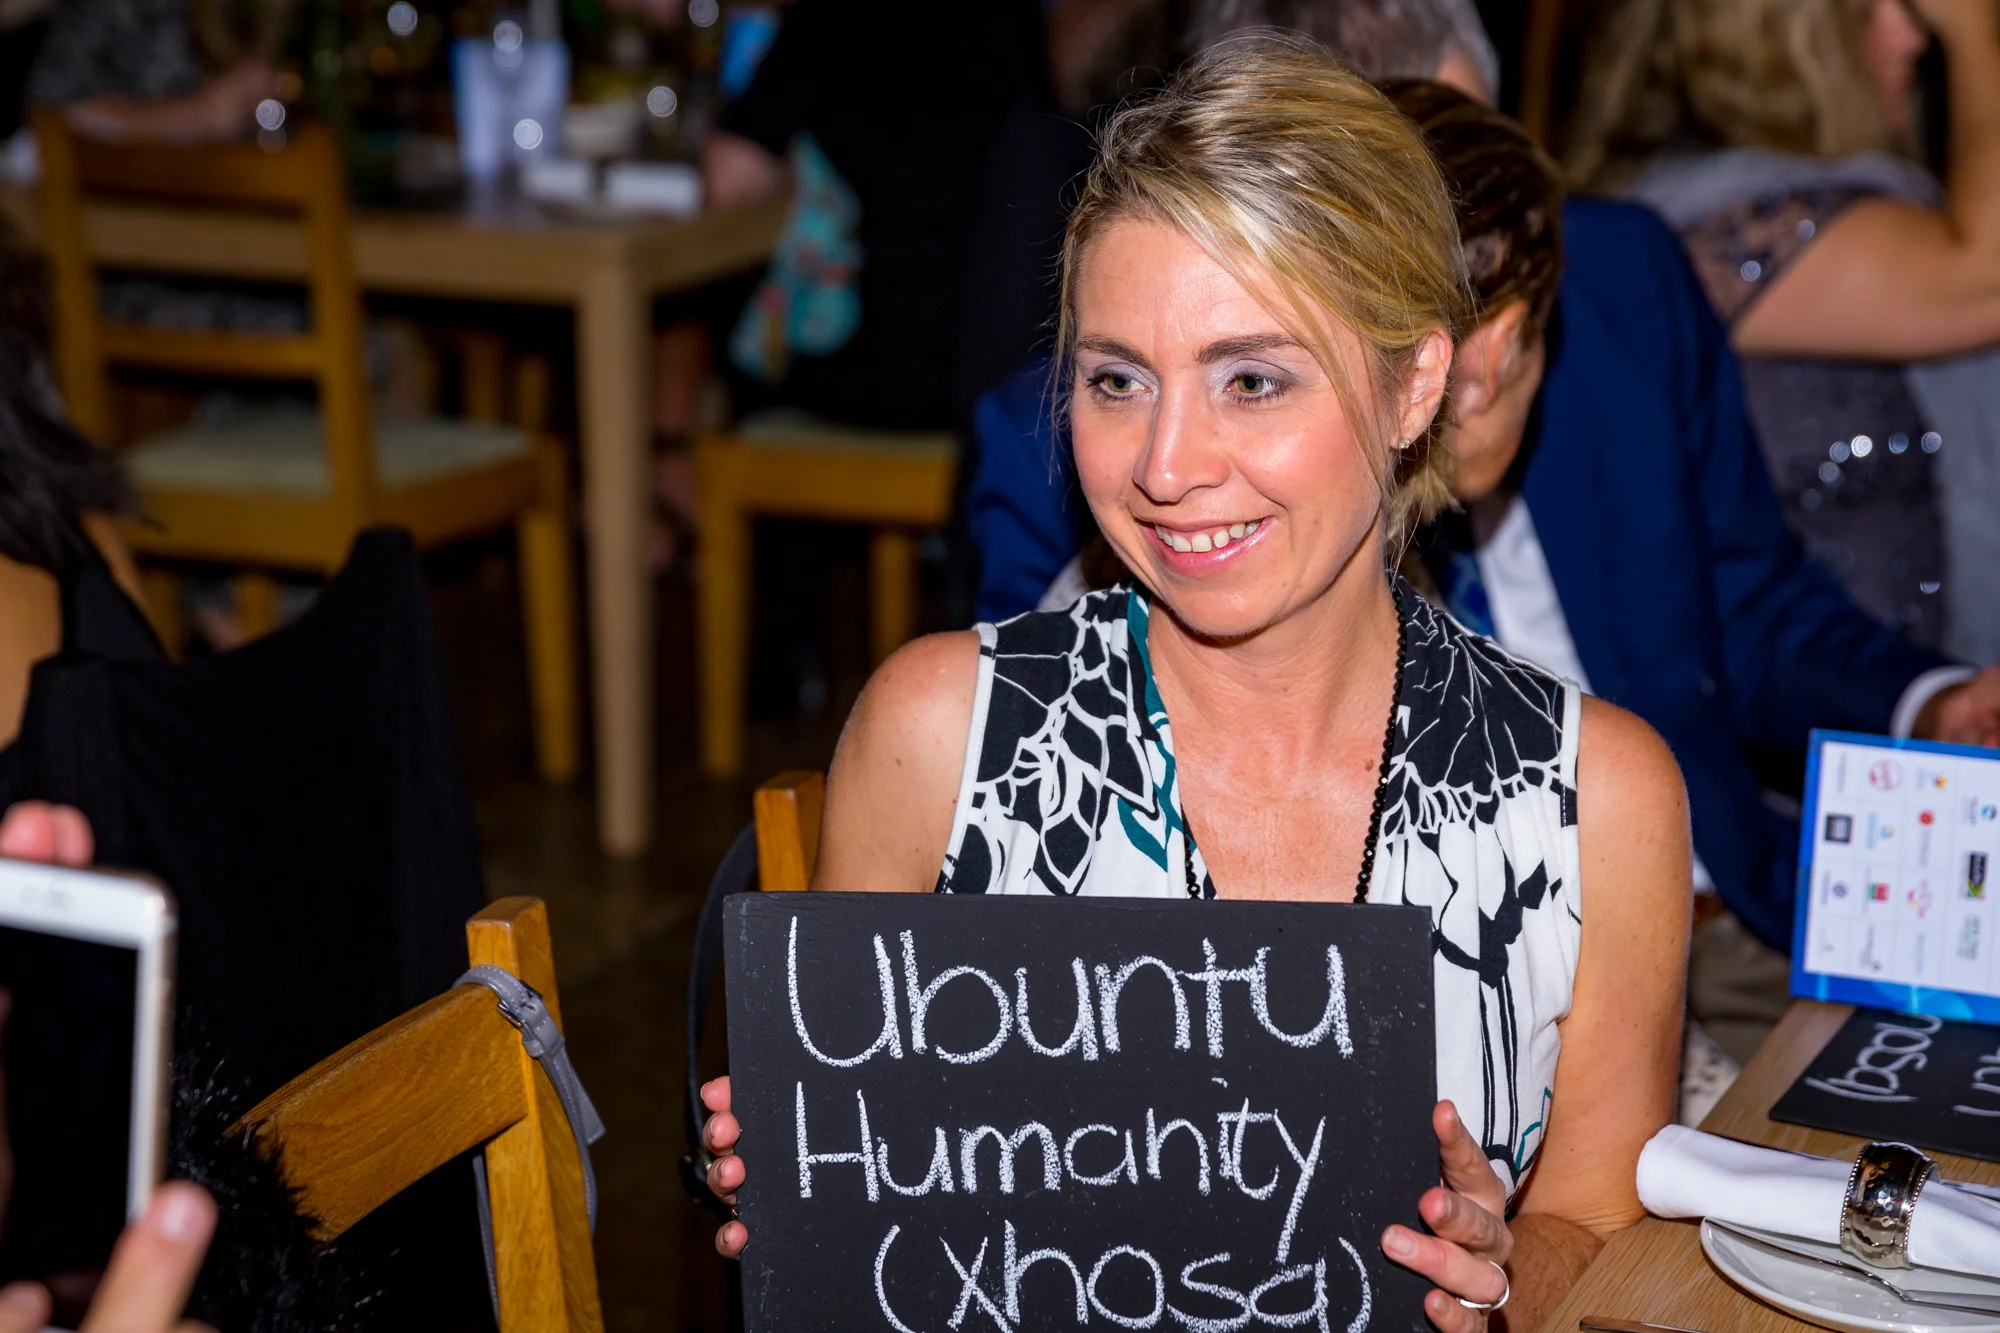 Ubuntu
Humanity
(Xhosa)